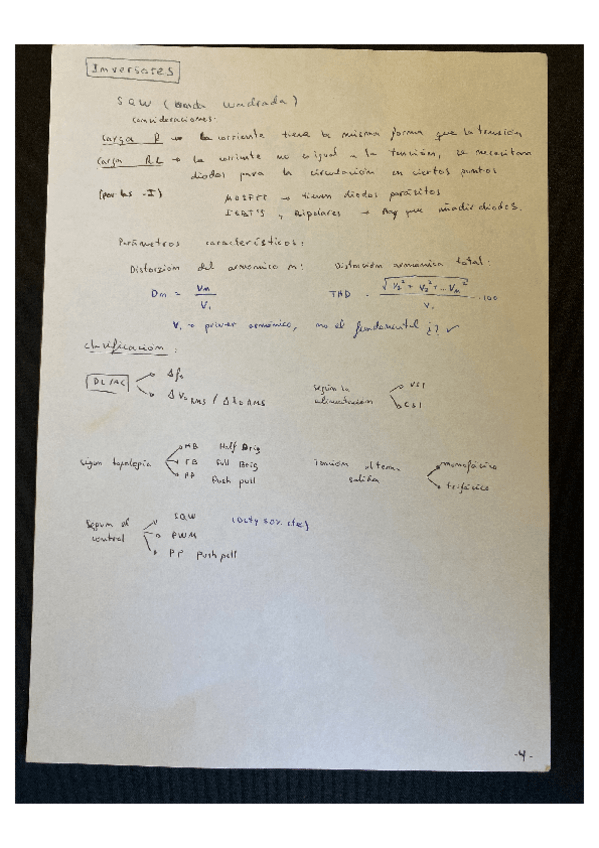 Inversores
SQW (Onda Cuadrada)
Consideraciones.
Carga R → La corriente tiene la misma forma que la tensión
Carga RL → La corriente no es igual a la tensión, se necesitan
diodos para la circulación en ciertos puntos
(por las -I)
MOSFET → tienen diodos parásitos
IGBT'S y Bipolares → Hay que añadir diodos.
Parámetros característicos:
Distorsión del armónico n: Distorsión armónica total:
Dn = Vn / V1 THD = √(V2² + V3² + ... Vn²) / V1 · 100
V1 → primer armónico, no el fundamental ¿? ✓
Clasificación:
DC/AC
Δf0
ΔV0RMS / ΔI0RMS
Según la alimentación
VSI
CSI
Según topología
HB Half Brig
FB Full Brig
PP Push pull
Tensión alterna salida
monofásico
trifásico
Según el control
SQW (Duty 50% cte)
PWM
PP Push pull
-4-